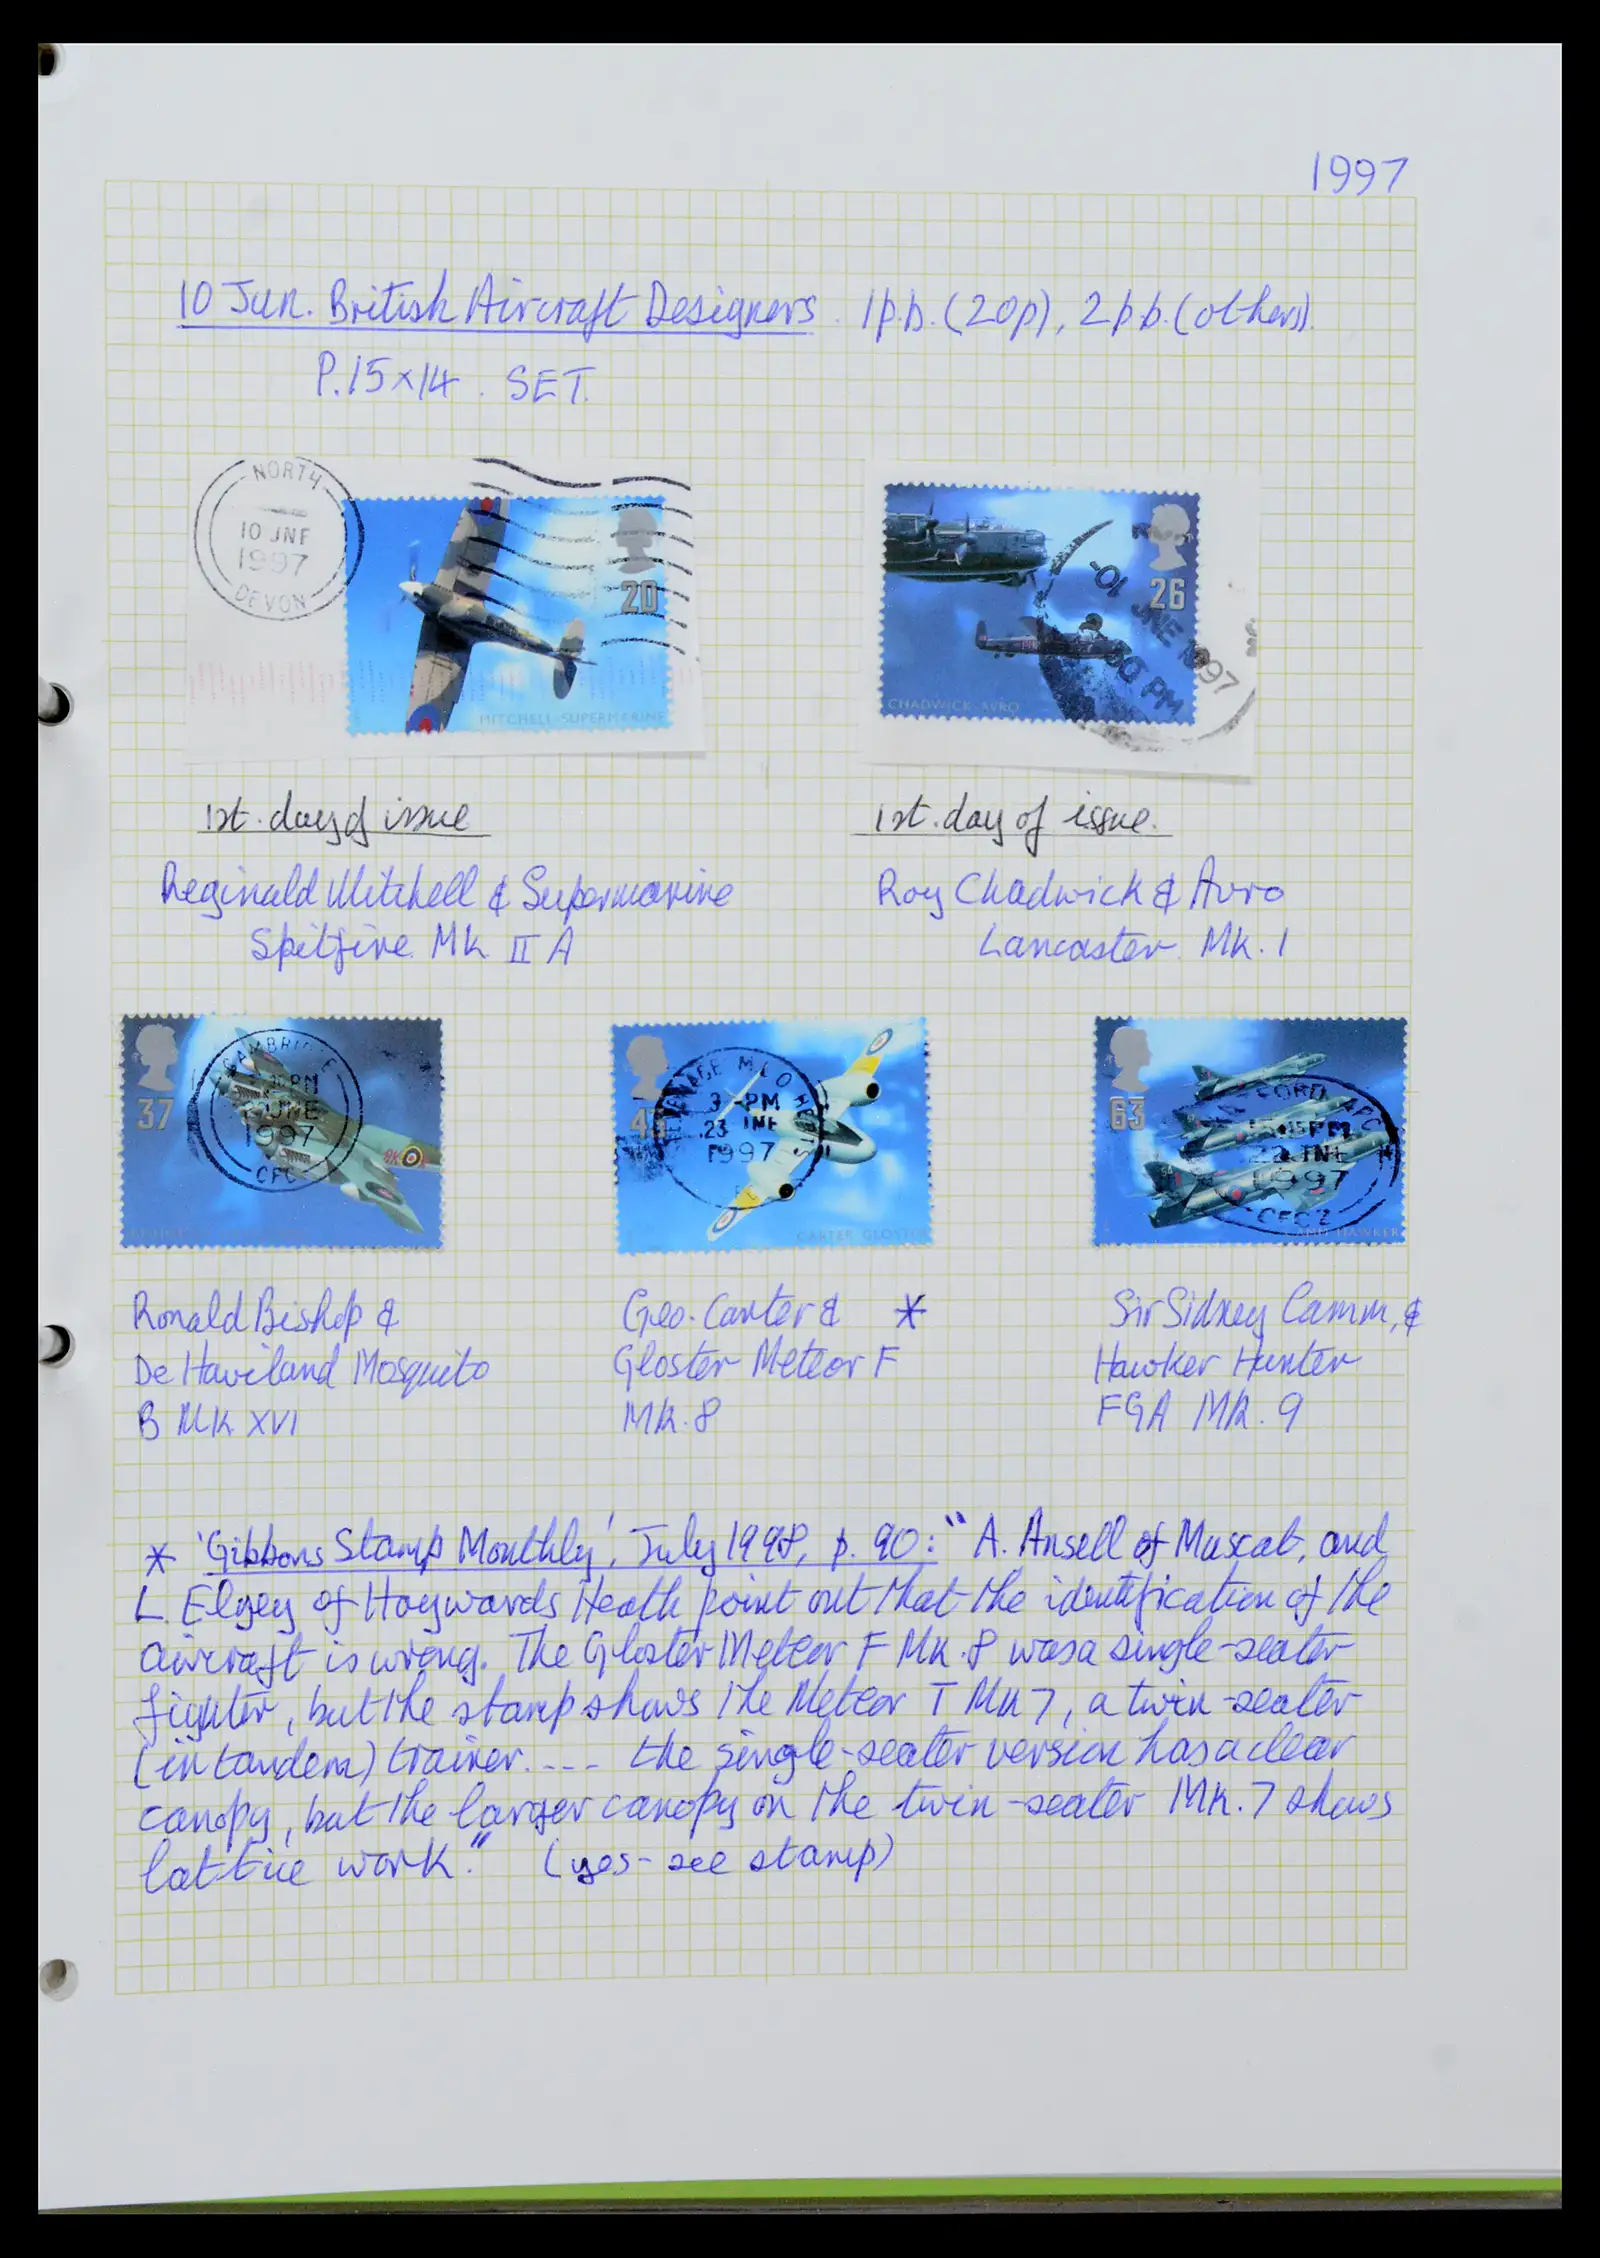 1997
10 Jun. British Aircraft Designers. 1p.b. (20p), 2p.b. (others).
P.15x14. SET.
NORTH
10 JNE
1997
DEVON
20
MITCHELL·SUPERMARINE
26
CHADWICK·AVRO
JNE 1997
PM
1st. day of issue
1st. day of issue.
Reginald Mitchell & Supermarine
Spitfire Mk II A
Roy Chadwick & Avro
Lancaster Mk. 1
37
CAMBRIDGE
PM
JNE
1997
CFC
M L O
3 -PM
23 JNE
1997
CARTER GLOSTER
63
FORD APC
PM
JNE
1997
CFC 2
CAMM HAWKER
Ronald Bishop &
De Haviland Mosquito
B Mk XVI
Geo. Carter & *
Gloster Meteor F
Mk. 8
Sir Sidney Camm, &
Hawker Hunter
FGA Mk. 9
* 'Gibbons Stamp Monthly', July 1998, p. 90: "A. Ansell of Muscat, and
L. Elgey of Haywards Heath point out that the identification of the
aircraft is wrong. The Gloster Meteor F Mk.8 was a single-seater
fighter, but the stamp shows the Meteor T Mk 7, a twin-seater
(in tandem) trainer. ---- the single-seater version has a clear
canopy, but the larger canopy on the twin-seater Mk.7 shows
lattice work." (yes - see stamp)